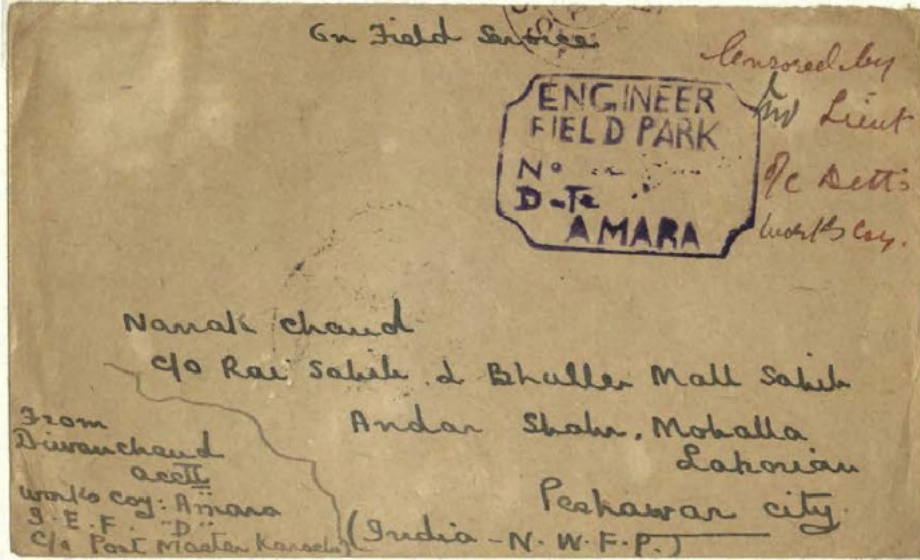 On Field Service
Censored by
Lieut
O/C Dett's
Works Coy.
ENGINEER
FIELD PARK
No
Date
AMARA
Nanak Chand
C/o Rai Sahib L Bhuller Mall Sahib
Andar Shahr, Mohalla
Lahorian
Peshawar City.
(India - N. W. F. P.)
From
Diwanchand
acctt
Works Coy: Amara
I. E. F. "D"
C/o Post Master Karachi